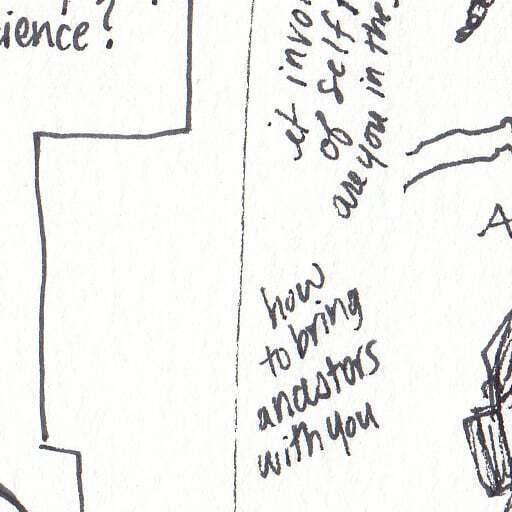 ?
ience?
it invol
of self
are you in the
A
how
to bring
ancestors
with you